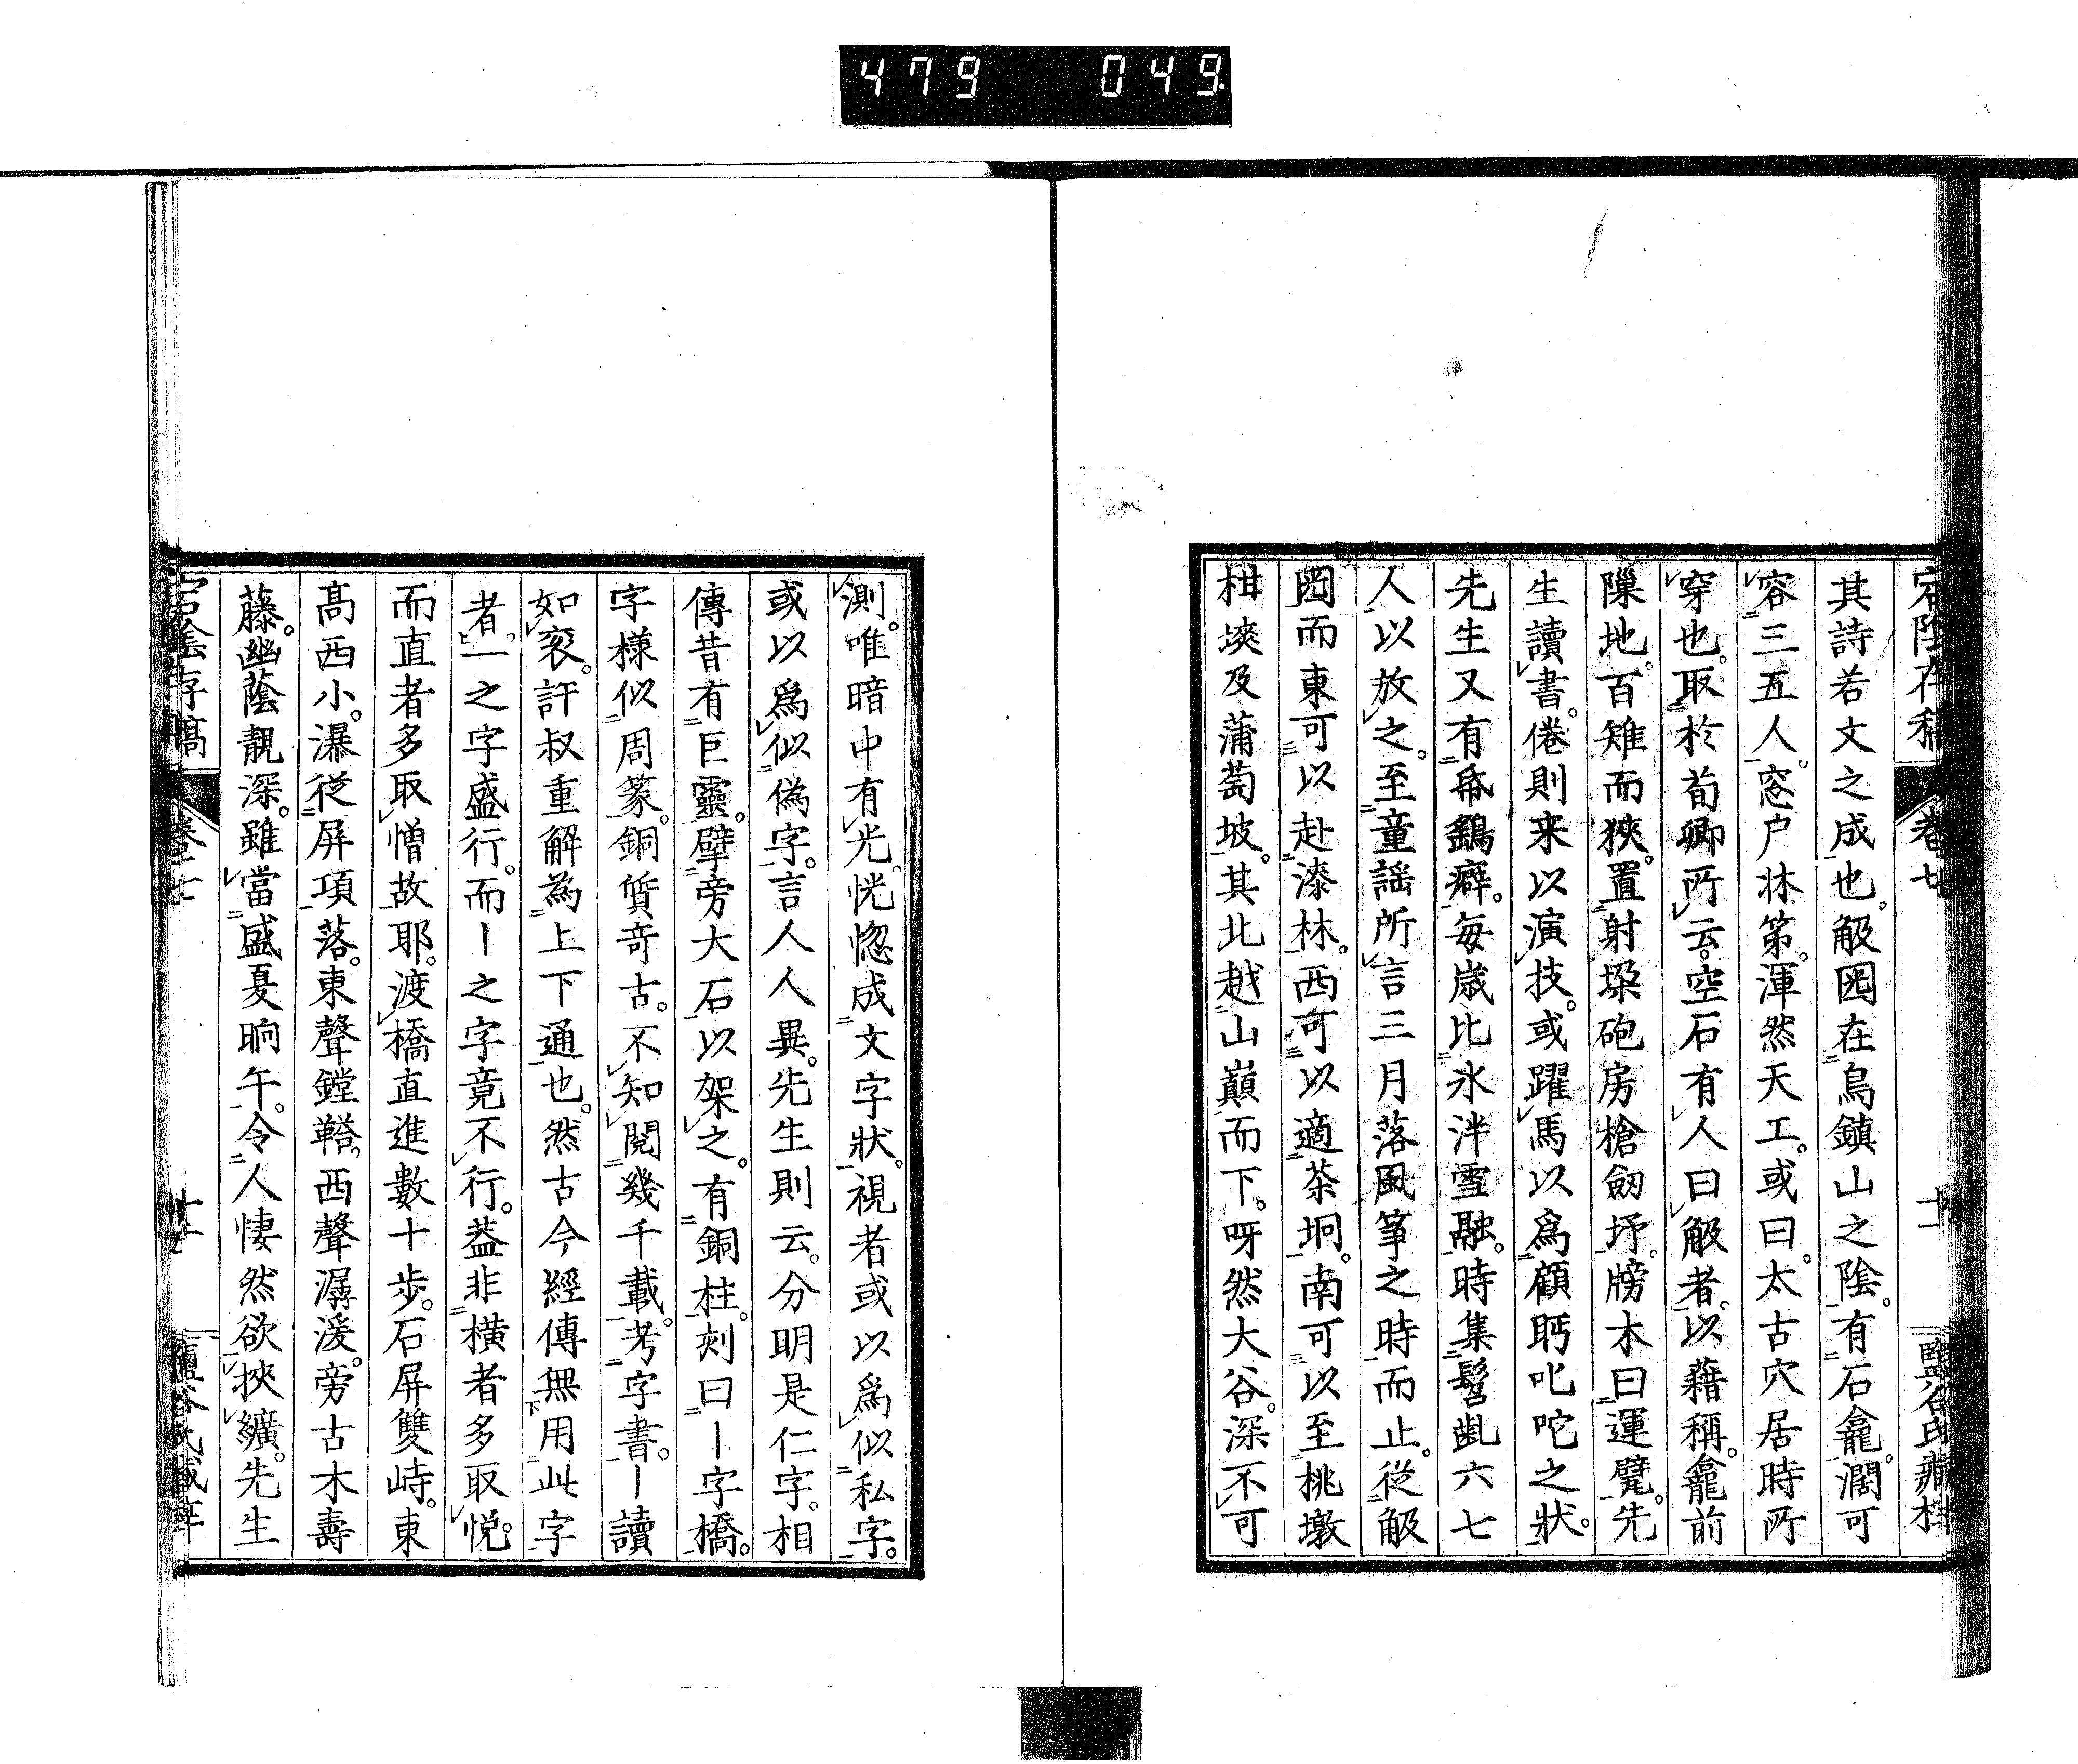 479 049.
宕陰存稿 卷七 十一
其詩若文之成也。觙園在烏鎮山之陰。有石龕。濶可
容三五人。窓户牀第。渾然天工。或曰。太古穴居時所
穿也。取於荀卿所云。空石有人曰觙者。以藉稱。龕前
隟地。百雉而狹。置射垜砲房槍劒垺。牓木曰運甓。先
生讀書。倦則来以演技。或躍馬以爲顧眄叱咤之狀。
先生又有帋鷂癖。每歳比氷泮雪融。時集髫齔六七
人以放之。至童謡所言三月落風筝之時而止。從觙
園而東可以赴漆林。西可以適茶坰。南可以至桃墩
柑堧及蒲萄坡。其北越山巔而下。呀然大谷。深不可
測。唯暗中有光。恍惚成文字狀。視者或以爲似私字。
或以爲似偽字。言人人異。先生則云。分明是仁字。相
傳昔有巨靈。擘旁大石以架之。有銅柱。刻曰丨字橋。
字樣似周篆。銅質竒古。不知閲幾千載。考字書。丨讀
如衮。許叔重解為上下通也。然古今經傳無用此字
者。一之字盛行。而丨之字竟不行。葢非横者多取悦。
而直者多取憎故耶。渡橋直進數十歩。石屏雙峙。東
髙西小。瀑從屏項落。東聲鏜鞳。西聲潺湲。旁古木壽
藤。幽蔭靚深。雖當盛夏晌午。令人悽然欲挾纊。先生
宕陰存稿 卷七